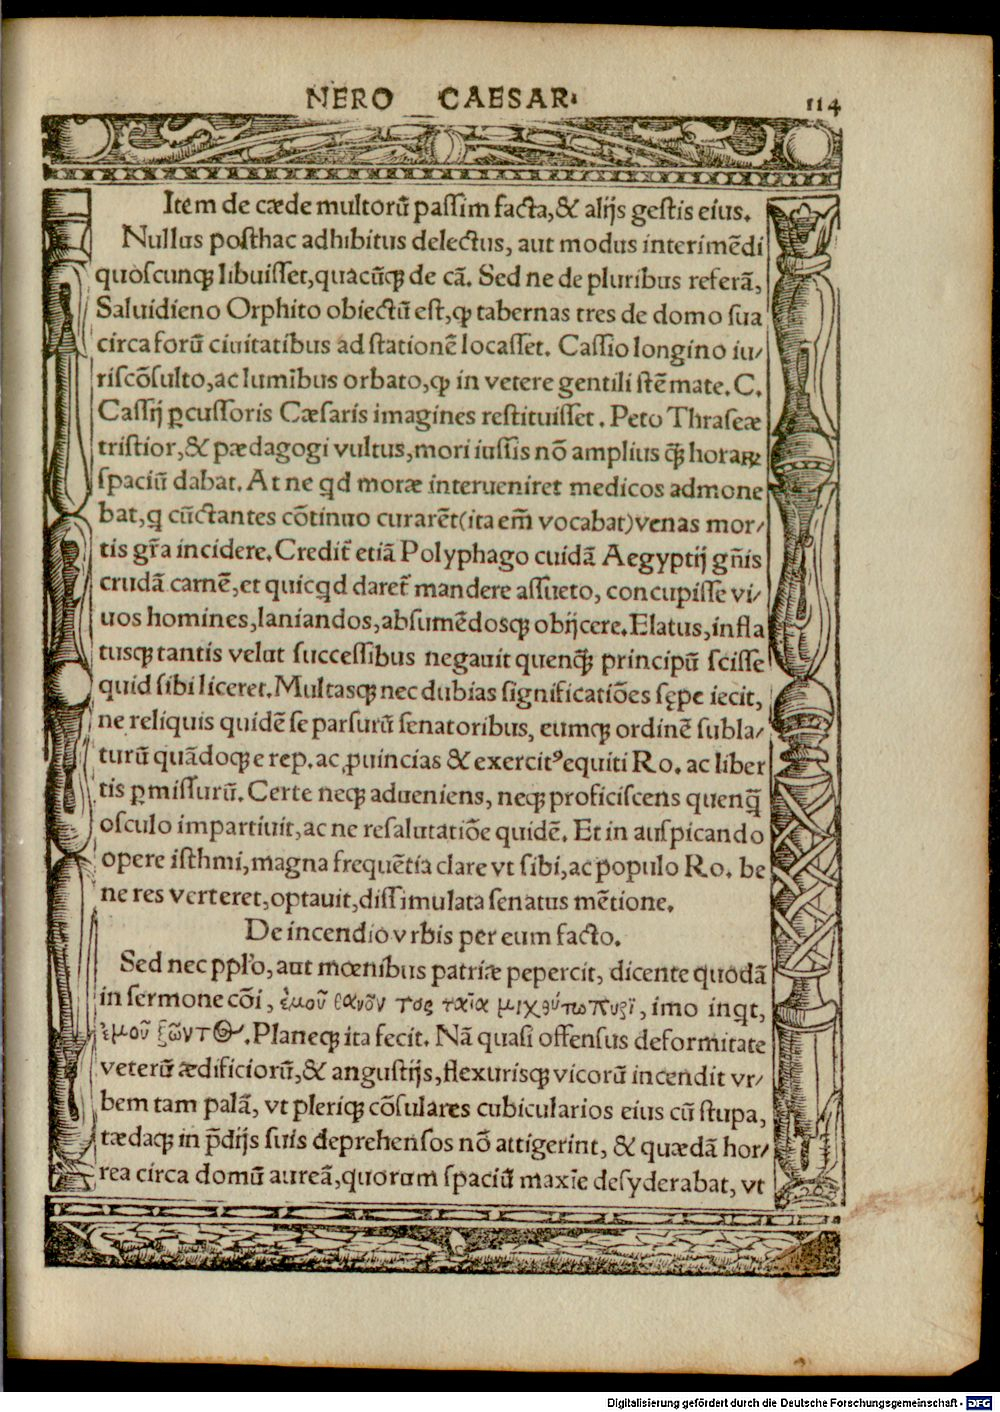 NERO CAESAR.
114
Item de cæde multorũ passim facta,& alijs gestis eius.
Nullus posthac adhibitus delectus, aut modus interimẽdi
quoscunq; libuisset,quacũq; de cã. Sed ne de pluribus referã,
Saluidieno Orphito obiectũ est,ꝙ tabernas tres de domo sua
circa forũ ciuitatibus ad stationẽ locasset. Cassio longino iu/
riscõsulto,ac luminibus orbato,ꝙ in vetere gentili stẽmate.C.
Cassij ꝑcussoris Cæsaris imagines restituisset. Peto Thraseæ
tristior,& pædagogi vultus,mori iussis nõ amplius q̃ꝫ horaꝝ
spaciũ dabat. At ne qd moræ interueniret medicos admone
bat,q cũctantes cõtinuo curarẽt(ita em̃ vocabat)venas mor/
tis gr̃a incidere. Credit̃ etiã Polyphago cuidã Aegyptij gñis
crudã carnẽ,et quicqd daret̃ mandere assueto, concupisse vi/
uos homines,laniandos,absumẽdosq; obijcere.Elatus,infla
tusq; tantis velut successibus negauit quenq̃ꝫ principũ scisse
quid sibi liceret.Multasq; nec dubias significatiões sępe iecit,
ne reliquis quidẽ se parsurũ senatoribus, eumq; ordinẽ subla/
turũ quãdoq; e rep. ac ꝓuincias & exercitꝰ equiti Ro. ac liber
tis ꝑmissurũ. Certe neq; adueniens, neq; proficiscens quenq̃ꝫ
osculo impartiuit,ac ne resalutatiõe quidẽ. Et in auspicando
opere isthmi,magna frequẽtia clare vt sibi,ac populo Ro. be
ne res verteret,optauit,dissimulata senatus mẽtione.
De incendio vrbis per eum facto.
Sed nec ppl̃o, aut mœnibus patriæ pepercit, dicente quodã
in sermone cõi, ἐμοῦ θανόντος γαῖα μιχθύτω πυρὶ, imo inqt,
ἐμοῦ ζῶντος. Planeq; ita fecit. Nã quasi offensus deformitate
veterũ ædificiorũ,& angustijs,flexurisq; vicorũ incendit vr/
bem tam palã, vt pleriq; cõsulares cubicularios eius cũ stupa,
tædaq; in p̃dijs suis deprehensos nõ attigerint, & quædã hor/
rea circa domũ aureã,quorum spaciũ maxĩe desyderabat, vt
Digitalisierung gefördert durch die Deutsche Forschungsgemeinschaft - DFG